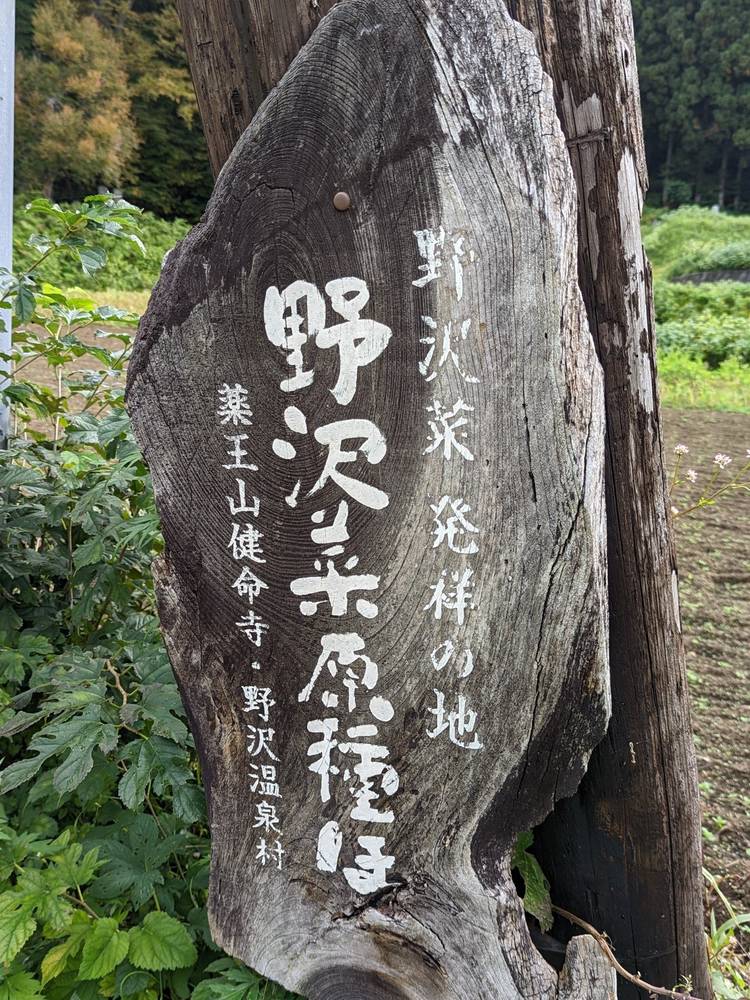 野沢菜 発祥の地
野沢菜原種ほ
薬王山健命寺・野沢温泉村